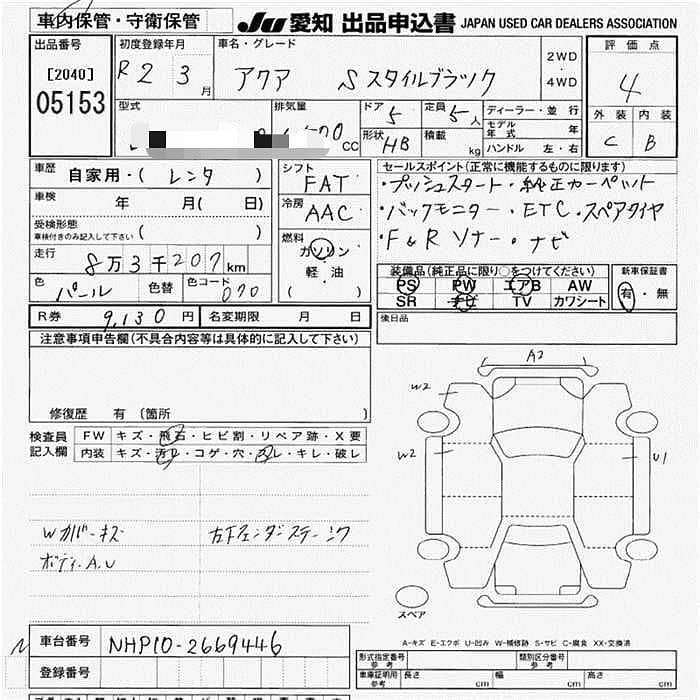 車内保管・守衛保管 JU 愛知 出品申込書 JAPAN USED CAR DEALERS ASSOCIATION
出品番号 初度登録年月 車名・グレード 評価点
[2040] R2 3月 アクア Sスタイルブラック 2WD・4WD 4
05153
型式 排気量 cc ドア 5 定員 5人 ディーラー・並行 外装 内装
形状 HB 積載 kg モデル年式 年 C B
ハンドル 左・右
車歴 自家用・( レンタ ) シフト FAT セールスポイント(正常に機能するものに限ります)
車検 年 月( 日) 冷房 AAC ・プッシュスタート・純正カーペット
受検形態 車検付きのみ記入して下さい ( ) ・バックモニター・ETC・スペアタイヤ
走行 8万3千207km 燃料 ガソリン 軽・油 ( ) ・F&Rソナー・ナビ
色 パール 色替 色コード 070 装備品(純正品に限り○をつけてください) 新車保証書
PS PW エアB AW 有・無
SR ナビ TV カワシート
R券 9,130円 名変期限 月 日 後日品
注意事項申告欄(不具合内容等は具体的に記入して下さい)
修復歴 有 (箇所 )
検査員記入欄 FW キズ・飛石・ヒビ割・リペア跡・X要
内装 キズ・汚レ・コゲ・穴・スレ・キレ・破レ
A2
W2
W2 U1
Wカバーキズ 右下フェンダーステーンク
ボディA.U
スペア
A-キズ E-エクボ U-凹み W-補修跡 S-サビ C-腐食 XX-交換済
車台番号 NHP10-2669446
登録番号
形式指定番号 参考 類別区分番号 参考
車庫証明用 参考 長さ cm 幅 cm 高さ cm